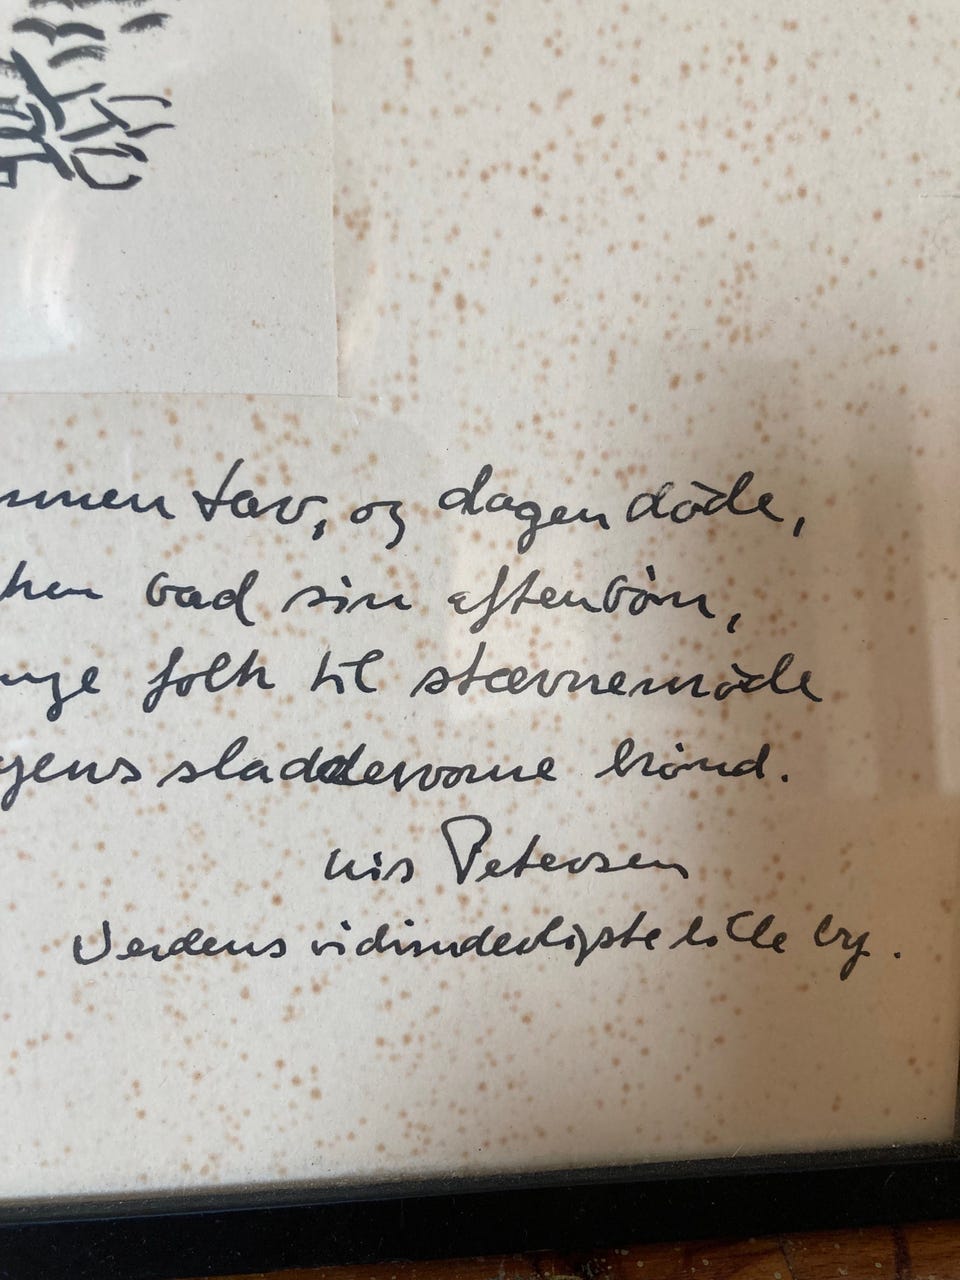 mmen tav, og dagen døde,
ken bad sin aftenbøn,
unge folk til stævnemøde
gens sladdervorne brønd.
Nis Petersen
Verdens vidunderligste lille by.